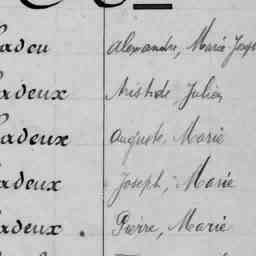 adou Alexandre, Marie Josep
adeux Aristide, Julien
adeux Auguste, Marie
adeux Joseph, Marie
adeux Pierre, Marie